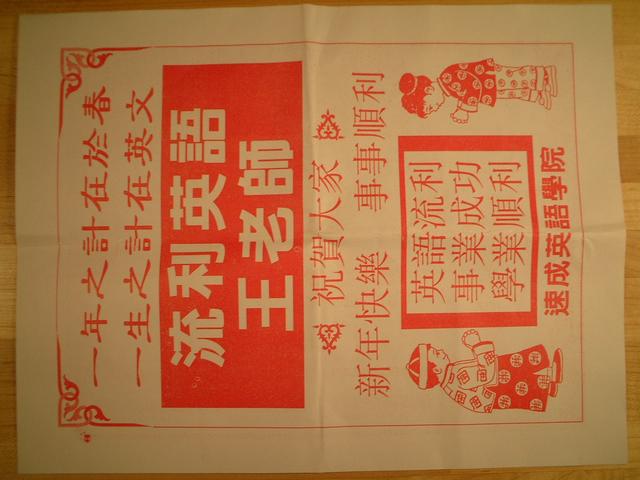 一年之計在於春
一生之計在英文
流利英語
王老師
祝賀大家
新年快樂 事事順利
英語流利
事業成功
學業順利
速成英語學院